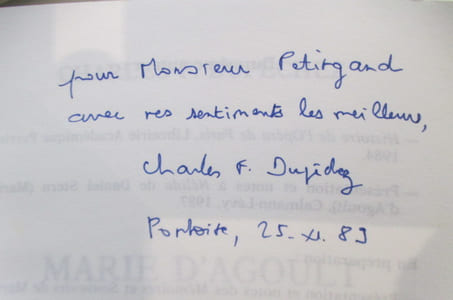 pour Monsieur Petitgand
avec mes sentiments les meilleurs,
— Histoire de l'Opéra de Paris, Librairie Académique Perrin
1984.
Charles F. Dupêchez
— Présentation et notes à Nélida de Daniel Stern (Marie
d'Agoult), Calmann-Lévy, 1987.
Pontoise, 25-XI. 89
En préparation
MARIE D'AGOULT